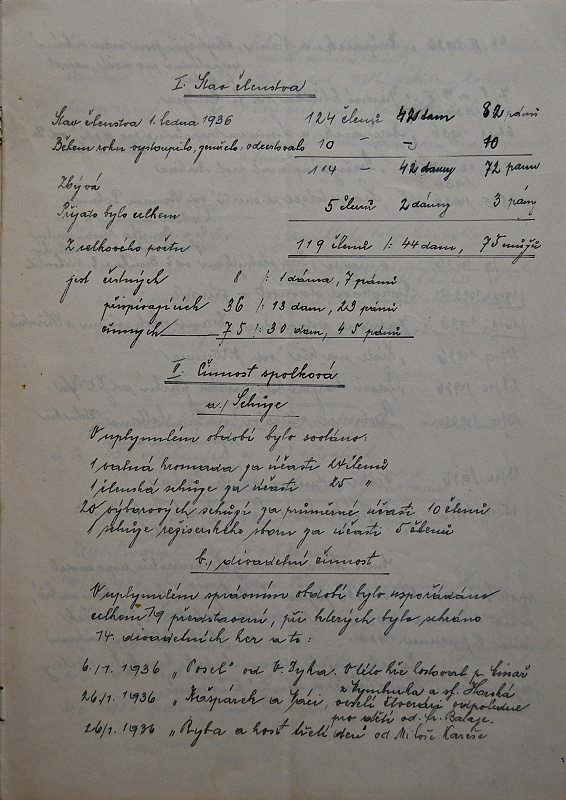 I. Stav členstva
Stav členstva 1. ledna 1936 124 členů 42 dam 82 pánů
Během roku vystoupilo, zemřelo, odcestovalo 10 – – 10
Zbývá 114 – 42 dámy 72 pánů
Přijato bylo celkem 5 členů 2 dámy 3 pány
Z celkového počtu 119 členů /: 44 dam, 75 mužů
jest čestných 8 /: 1 dáma, 7 pánů
přispívajících 36 /: 13 dam, 23 pánů
činných 75 /: 30 dam, 45 pánů
II. Činnost spolková
a./ Schůze
V uplynulém období bylo svoláno:
1 valná hromada za účasti 24 členů
1 členská schůze za účasti 25 "
20 výborových schůzí za průměrné účasti 10 členů
1 schůze režiserského sboru za účasti 5 členů
b., divadelní činnost
V uplynulém správním období bylo uspořádáno
celkem 19 představení, při kterých bylo sehráno
14. divadelních her a to:
6./1. 1936 „Posel" od V. Dyka. V této hře hostoval p.
z Nymburka a sl. Horská
26/1. 1936 „Kašpárek a veselí čtveráci odpoledne
pro děti od Fr.
26/1. 1936 „Ryba a host třetí den" od Miloše Kareše